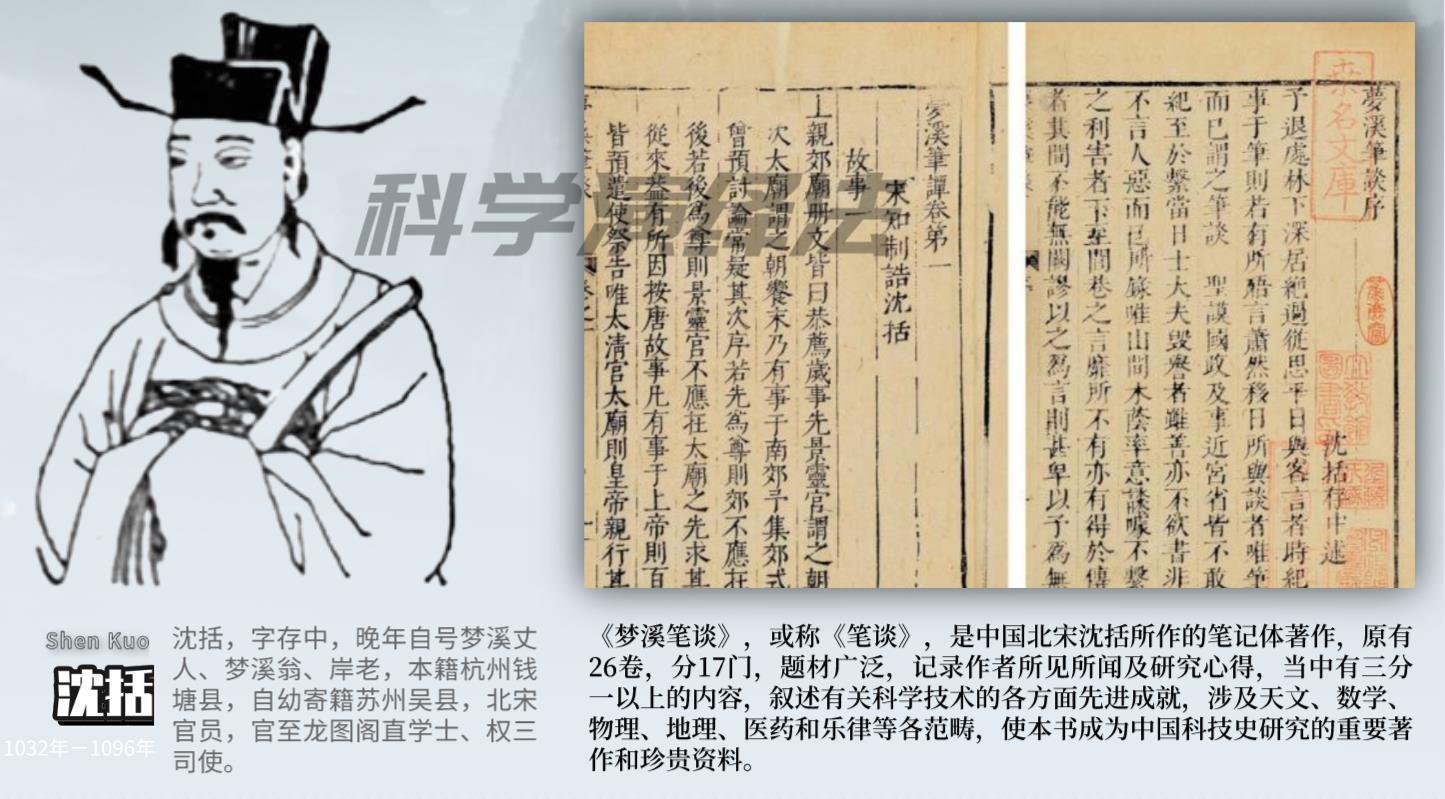 科学演绎法
夢溪筆談序
沈括存中述
予退處林下深居絶過從思平日與客言者時紀
事于筆則若有所晤言蕭然移日所與談者唯筆
而已謂之筆談 聖謨國政及事近宮省皆不敢
紀至於繫當日士大夫毀譽者雖善亦不欲書非
不言人惡而已所錄唯山間木蔭率意談噱不繫
之利害者下至閭巷之言靡所不有亦有得於傳
者其間不能無闕謬以之爲言則甚卑以予爲無
桒名文庫
夢溪筆譚卷第一
宋知制誥沈括
故事一
上親郊廟册文皆曰恭薦歲事先景靈宮謂之朝
次太廟謂之朝饗末乃有事于南郊予集郊式
曾預討論常疑其次序若先爲尊則郊不應在
後若後爲尊則景靈宮不應在太廟之先求其
從來蓋有所因按唐故事凡有事于上帝則百
皆預遣使祭告唯太清宮太廟則皇帝親行其
Shen Kuo
沈括
1032年－1096年
沈括，字存中，晚年自号梦溪丈
人、梦溪翁、岸老，本籍杭州钱
塘县，自幼寄籍苏州吴县，北宋
官员，官至龙图阁直学士、权三
司使。
《梦溪笔谈》，或称《笔谈》，是中国北宋沈括所作的笔记体著作，原有
26卷，分17门，题材广泛，记录作者所见所闻及研究心得，当中有三分
一以上的内容，叙述有关科学技术的各方面先进成就，涉及天文、数学、
物理、地理、医药和乐律等各范畴，使本书成为中国科技史研究的重要著
作和珍贵资料。